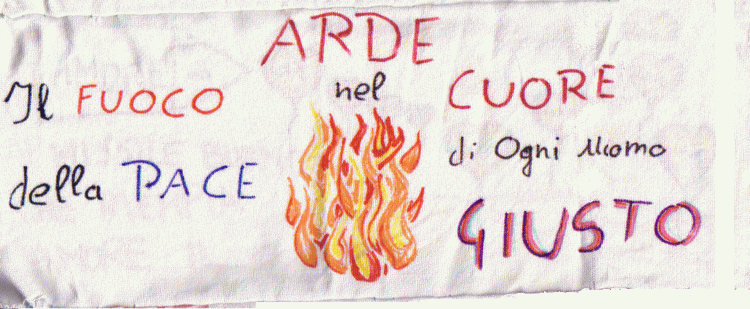 Il FUOCO
della PACE
ARDE
nel
CUORE
di Ogni Uomo
GIUSTO